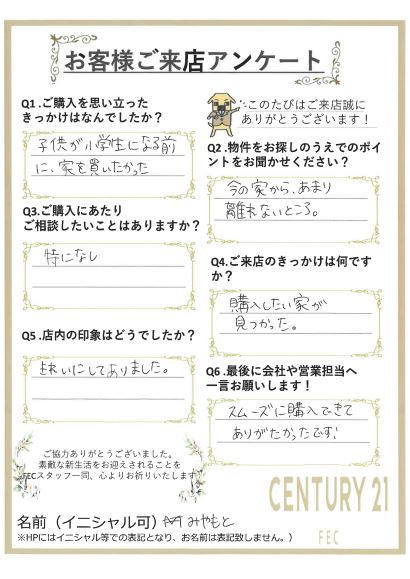 お客様ご来店アンケート
Q1.ご購入を思い立った
きっかけはなんでしたか？
子供が小学生になる前
に、家を買いたかった
このたびはご来店誠に
ありがとうございます！
Q2.物件をお探しのうえでのポイ
ントをお聞かせください？
今の家から、あまり
離れないところ。
Q3.ご購入にあたり
ご相談したいことはありますか？
特になし
Q4.ご来店のきっかけは何です
か？
購入したい家が
見つかった。
Q5.店内の印象はどうでしたか？
きれいにしてありました。
Q6.最後に会社や営業担当へ
一言お願いします！
スムーズに購入できて
ありがたかったです！
ご協力ありがとうございました。
素敵な新生活をお迎えされることを
FECスタッフ一同、心よりお祈りいたします
CENTURY 21
FEC
名前（イニシャル可）みやもと
※HPにはイニシャル等での表記となり、お名前は表記致しません。）